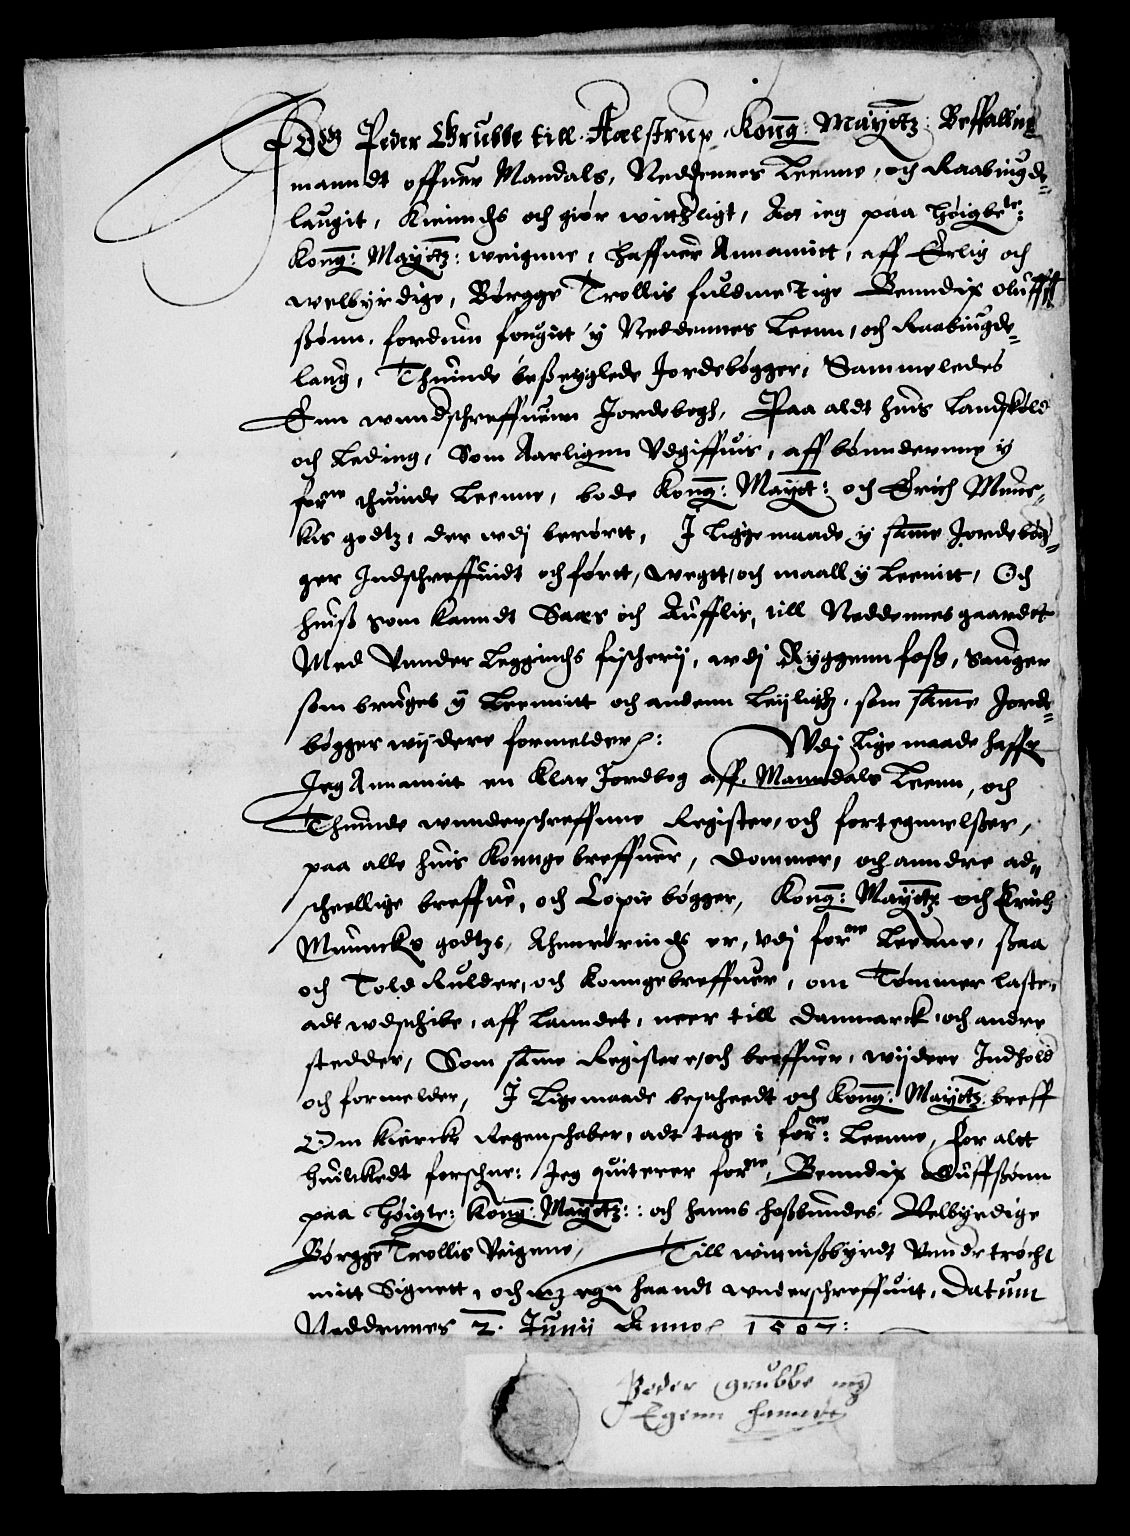 Jeg Peder Grubbe till Aalstrup, Kong: Mayetz: Beffalling
manndt offuer Mandals, Neddennes Leenne, och Raabiugde-
laugit, Kiennds och giør witterligt, Att ieg paa høigbete:
Kong: Mayetz: weigne, haffuer Annamitt, aff Erlig och
welbyrdige, Børgge Trollis fuldmectige Benndix Oluff
ßønn, fordum fougitt y Neddennes Leenn, och Raabiugde-
laug, Thuinde beßeyglede Jordebøgger, Sammeledes
Enn wundschreffuenn Jordebogh, Paa aldt huis Landskøld
och Leding, Som Aarligenn Vdgiffuis, aff bønnderenne y
forne thuinde Leenne, bode Kong: Mayet: och Erich Munc-
kis godtz, der wdj berørtt, J lige maade y same Jordebøg-
ger Indschreffuidt och førtt, wegtt, och maall y Leenitt, Och
huiß som kanndt Saaes och Aufflis, till Neddennes gaardtt
Med Vnnder Legginds fischerij, wdj Ryggennfoß, Sauger
som bruges y Leennitt och andenn Leijlighz, som same Jorde-
bøgger wijdere formelder: Wdj lige maade haffr
Jeg Annamitt en klar Jordbog aff Manndals Leenn, och
Thuinde wunderschreffne Register, och fortegnnelßer,
paa alle huis Konnge breffuer, Dommer, och anndre ad-
schellige breffue, och Copie bøgger, Kong: Mayetz och Erich
Munncks godtzs, Anrørinds er, vdj forne Leenne, ßaa
och Told Rulder, och Konngebreffuer, om Tømmer laste,
adt wdschibe, aff Lanndet, neer till Danmarck och andre
stedder, Som same Registere, och breffuer, wijdere Indhold
och formelder, J Ligemaade bescheedt och Kong: Mayetz: breff
Om Kiercke Regenschaber, adt tage i forne: Leenne, for altt
huilckedt forschne: Jeg quiterer forne, Benndix Oluffßønn
paa høigte: Kong: Mayetz: och hanns hoßbundes Velbyrdige
Børgge Trollis Veigne, Till winnißbyrdt Vnndertrøcht
mitt Signett, och mz egn haandt wnderschreffuitt, Datum
Neddennes 2. Junij Anno 1597:
Peder Grubbe mz
Egenn haandt